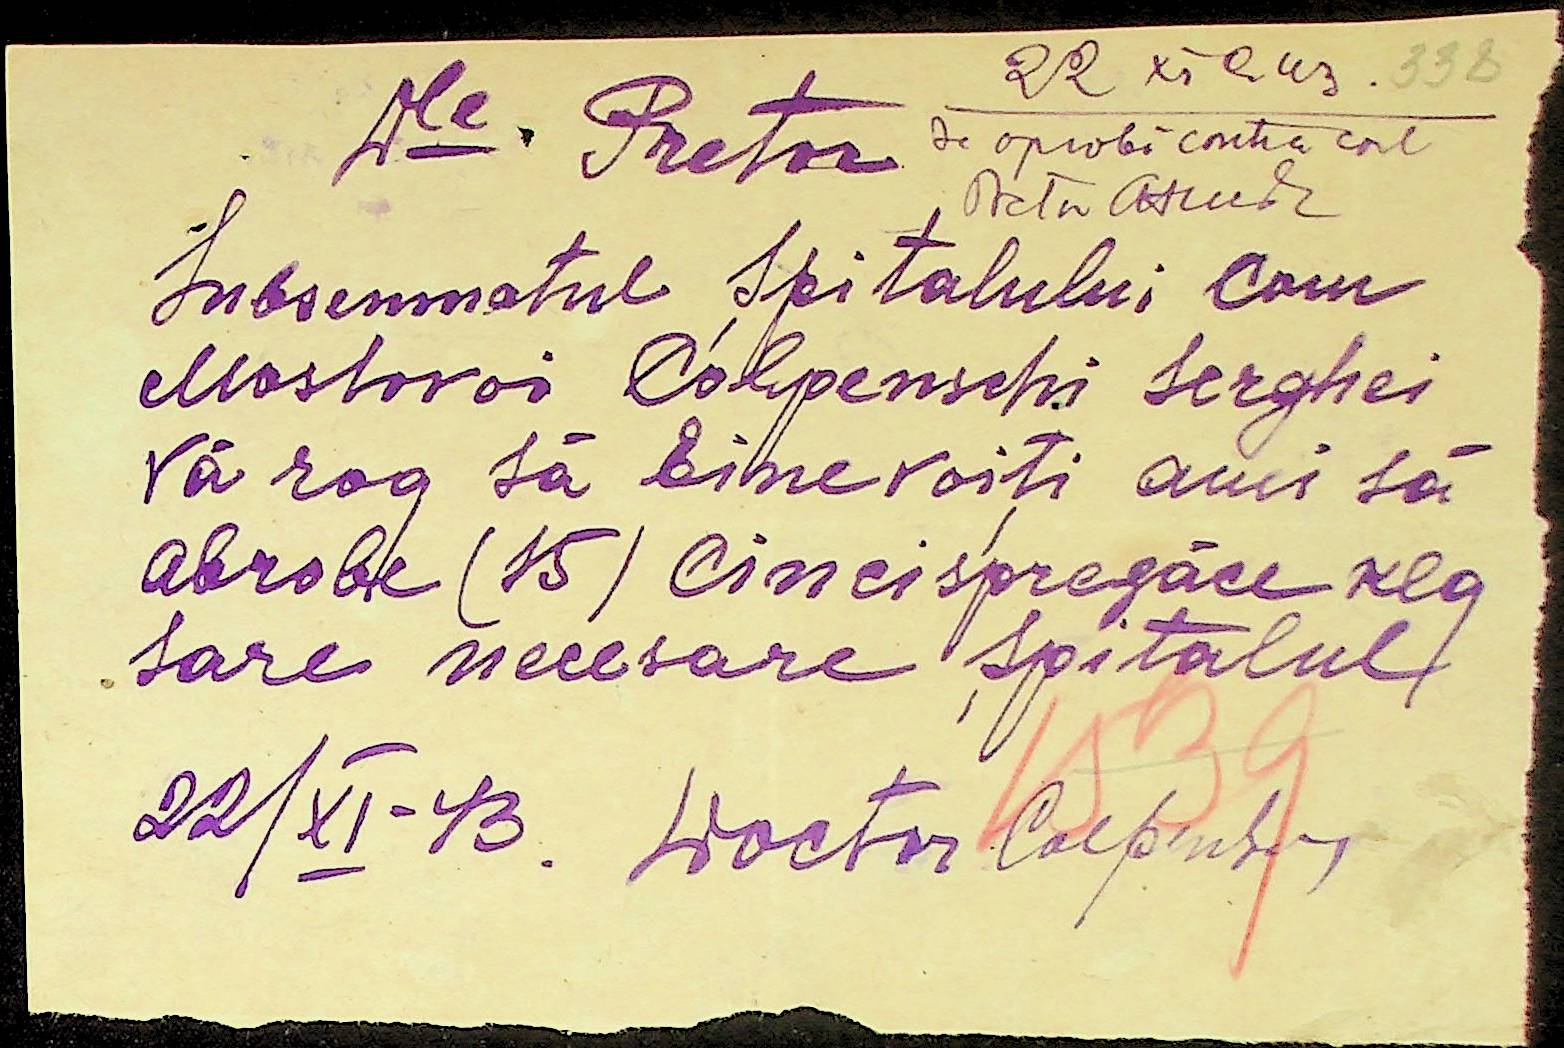 338
22 XI 943.
Dle. Pretor
Se aprobă contra cost
Pretor
Subsemnatul Spitalului Com
Mostovoi Colpenschi Serghei
Vă rog să Binevoiti a mi să
abrobe (15) Cincisprezăce klg
sare necesare spitalul
1539
22/XI-43. Doctor Colpenschi